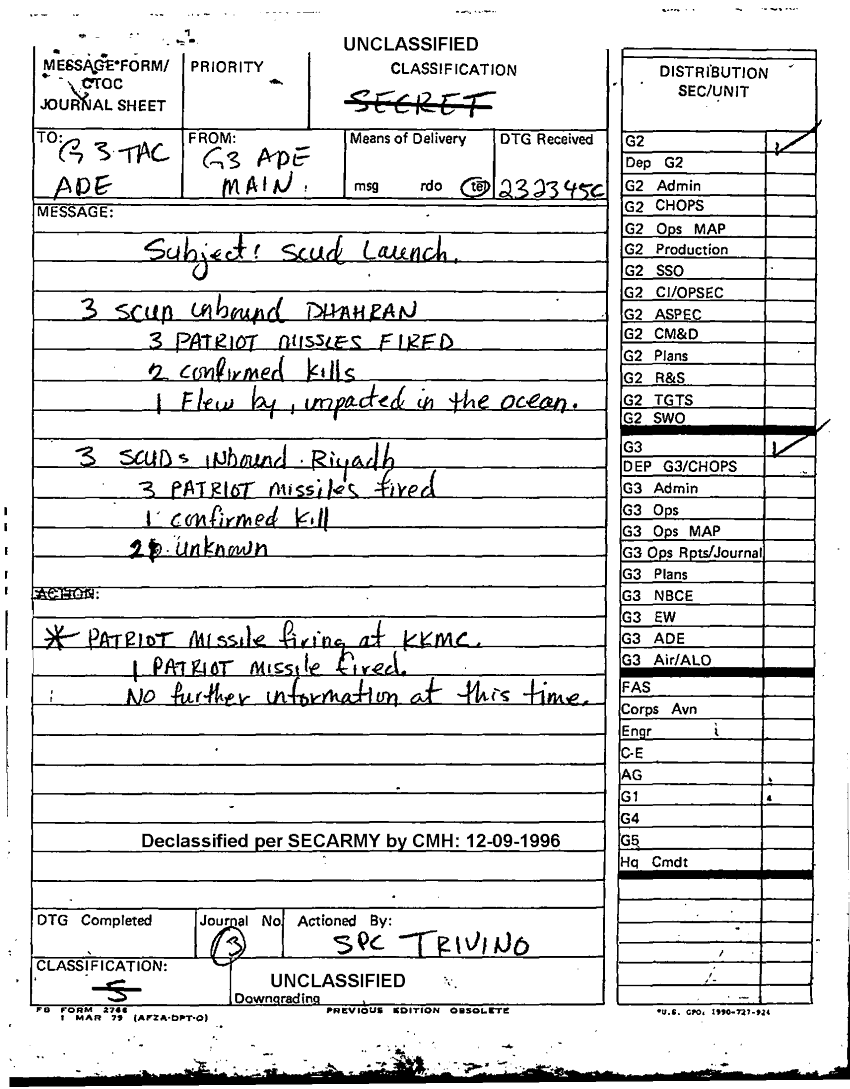 UNCLASSIFIED
MESSAGE FORM/
CTOC
JOURNAL SHEET
PRIORITY
CLASSIFICATION
SECRET
TO: G3 TAC
ADE
FROM: G3 ADE
MAIN
Means of Delivery
msg rdo tel
DTG Received
232345C
MESSAGE:
Subject: Scud Launch.
3 SCUD inbound DHAHRAN
3 PATRIOT MISSLES FIRED
2 confirmed kills
1 Flew by, impacted in the ocean.
3 SCUDs INbound Riyadh
3 PATRIOT missiles fired
1 confirmed kill
2 unknown
ACTION:
* PATRIOT Missile firing at KKMC.
1 PATRIOT Missile fired.
No further information at this time.
Declassified per SECARMY by CMH: 12-09-1996
DTG Completed
Journal No
3
Actioned By:
SPC TRIVINO
CLASSIFICATION:
S
UNCLASSIFIED
Downgrading
FB FORM 2766
1 MAR 79 (AFZA-DPT-O)
PREVIOUS EDITION OBSOLETE
DISTRIBUTION
SEC/UNIT
G2
Dep G2
G2 Admin
G2 CHOPS
G2 Ops MAP
G2 Production
G2 SSO
G2 CI/OPSEC
G2 ASPEC
G2 CM&D
G2 Plans
G2 R&S
G2 TGTS
G2 SWO
G3
DEP G3/CHOPS
G3 Admin
G3 Ops
G3 Ops MAP
G3 Ops Rpts/Journal
G3 Plans
G3 NBCE
G3 EW
G3 ADE
G3 Air/ALO
FAS
Corps Avn
Engr
C-E
AG
G1
G4
G5
Hq Cmdt
*U.S. GPO: 1990-727-924